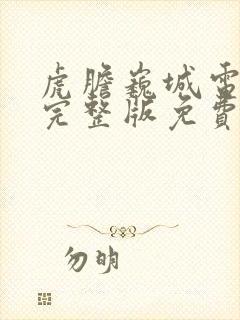 虎膽巍城電
完整版免費
勿明